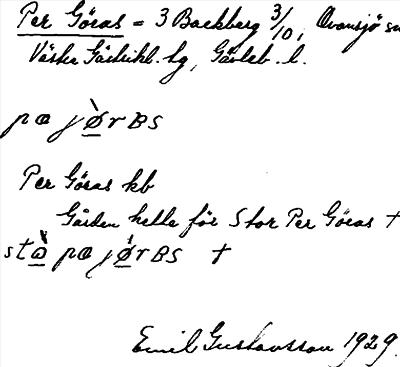 Per Göras = 3 Backberg 3/10, Ovansjö sn
Västra Gästrikl. hg, Gävleb. l.
pæ jø̀rʙs
Per Göras kb
Gården hette för Stor Per Göras †
stɷ̀ pæ jø̀rʙs †
Emil Gustavsson 1929.